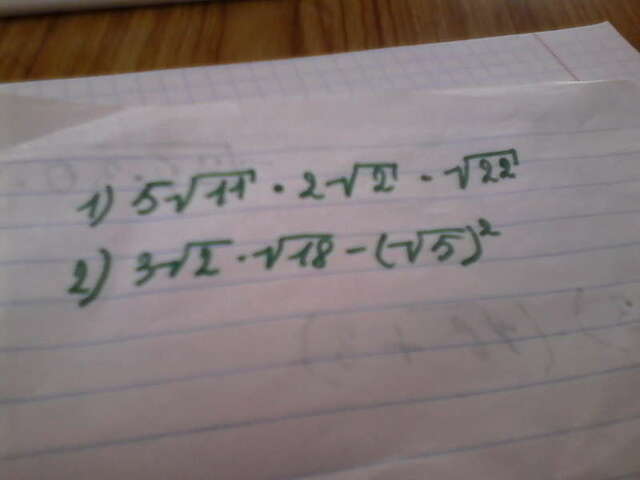 1) 5√11 · 2√2 · √22
2) 3√2 · √18 - (√5)²